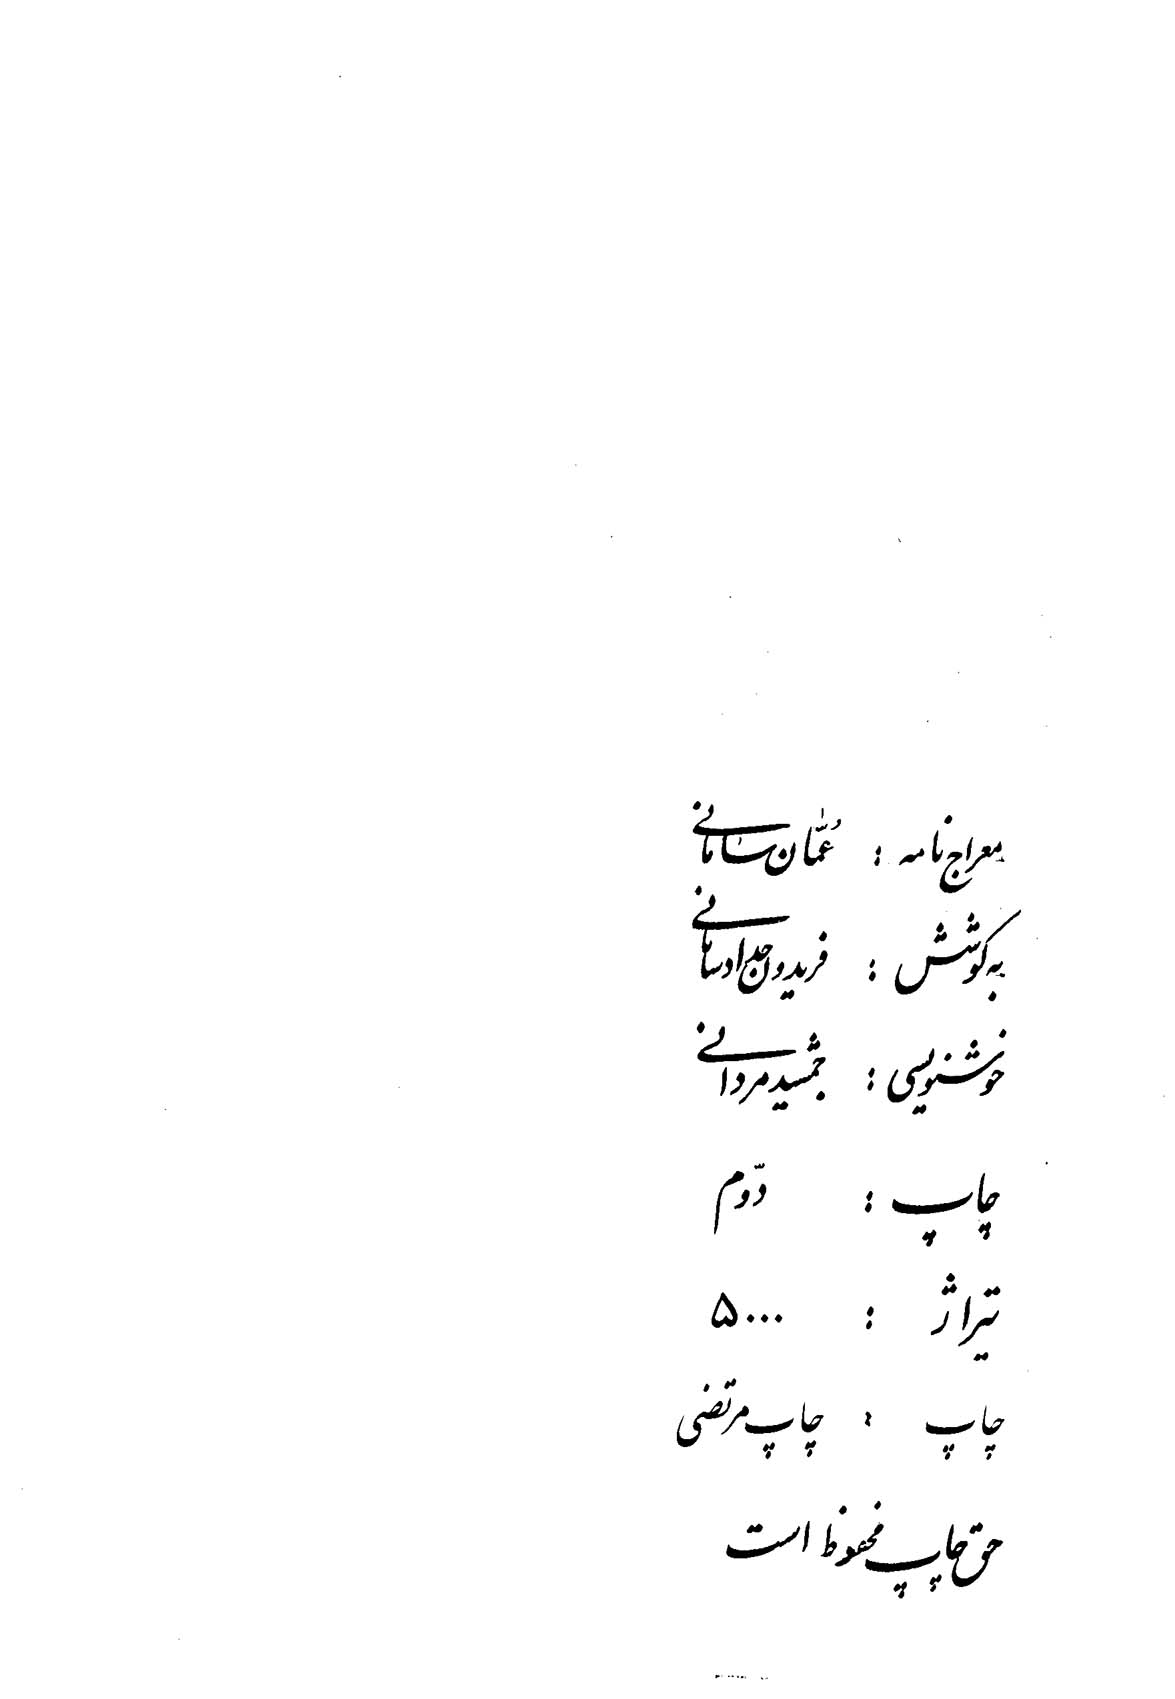 معراج نامه : عُمّان سامانی
به کوشش : فریدون حداد سامانی
خوشنویسی : جمشید مردانی
چاپ : دوّم
تیراژ : ۵۰۰۰
چاپ : چاپ مرتضی
حق چاپ محفوظ است